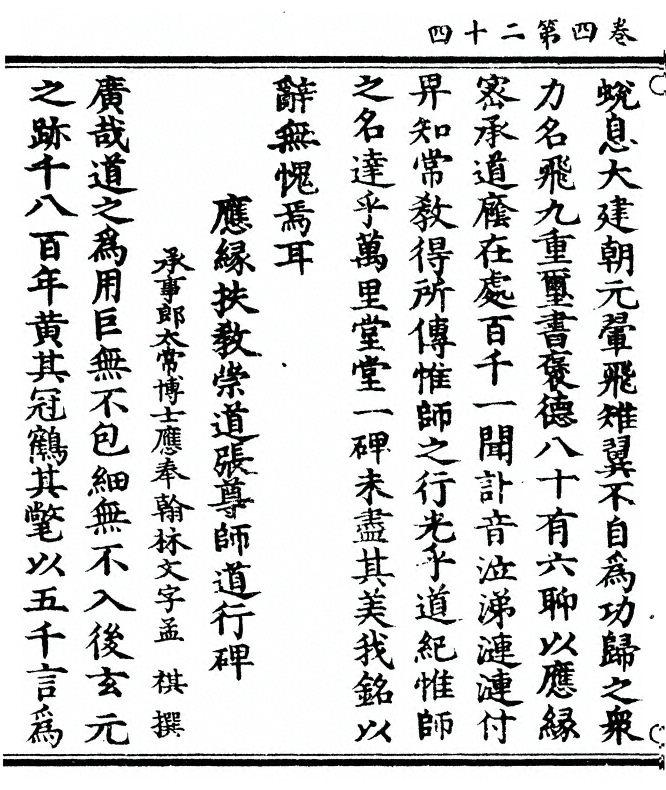 卷四第二十四
蛻息大建朝元翬飛雉翼不自為功歸之衆
力名飛九重璽書褒德八十有六聊以應緣
密承道廕在處百千一聞訃音泣涕漣漣付
畀知常教得所傳惟師之行光乎道紀惟師
之名達乎萬里堂堂一碑未盡其美我銘以
辭無愧焉耳
應緣扶教崇道張尊師道行碑
承事郎太常博士應奉翰林文字孟 祺 撰
廣哉道之為用巨無不包細無不入後玄元
之跡千八百年黃其冠鶴其氅以五千言為